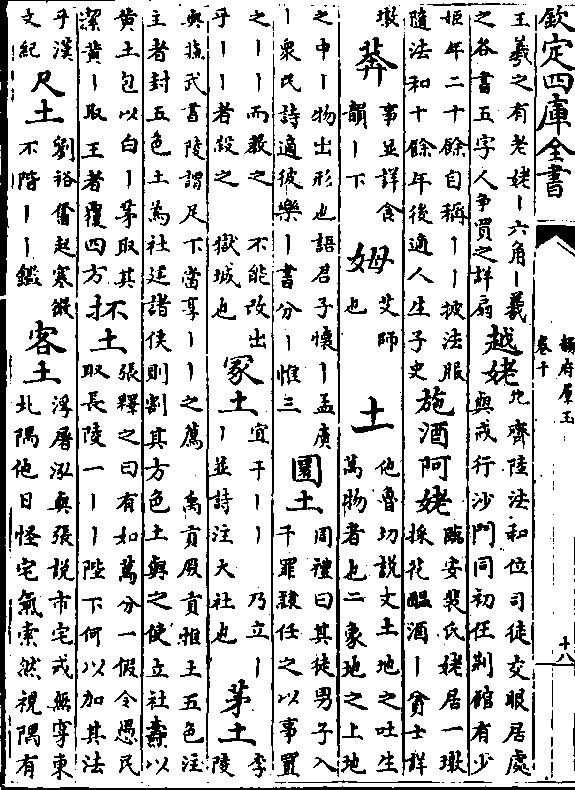 欽定四庫全書
韻府羣玉
卷十
十八
王羲之有老姥丨六角丨羲
之各書五字人爭買之詳扇
越姥
北齊陸法和位司徒交服居處
與戒行沙門同初任荆館有少
姬年二十餘自稱丨丨披法服
隨法和十餘年後適人生子史
施酒阿姥
臨安裴氏姥居一墩
採花醖酒丨貧士詳
墩
莽
事並詳食
韻丨下
姆
艾師
也
土
他魯切説文土地之吐生
萬物者也二象地之上地
之中丨物出形也語君子懷丨孟廣
丨衆民詩適彼樂丨書分丨惟三
圜土
周禮曰其徒男子入
于罪隸任之以事置
之丨丨而教之 不能改出
乎丨丨者殺之 獄城也
冢土
宜于丨丨 乃立丨
丨並詩注大社也
茅土
李
陵
與蘇武書陵謂足下當享丨丨之薦 禹貢厥貢惟土五色注
主者封五色土為社建諸侯則割其方色土與之使立社燾以
黄土包以白丨茅取其
潔黄丨取王者覆四方
抔土
張釋之曰有如萬分一假令愚民
取長陵一丨丨陛下何以加其法
乎漢
文紀
尺土
劉裕奮起寒微
不階丨丨鑑
客土
浮屠泓與張説市宅戒無穿東
北隅他日怪宅氣索然視隅有